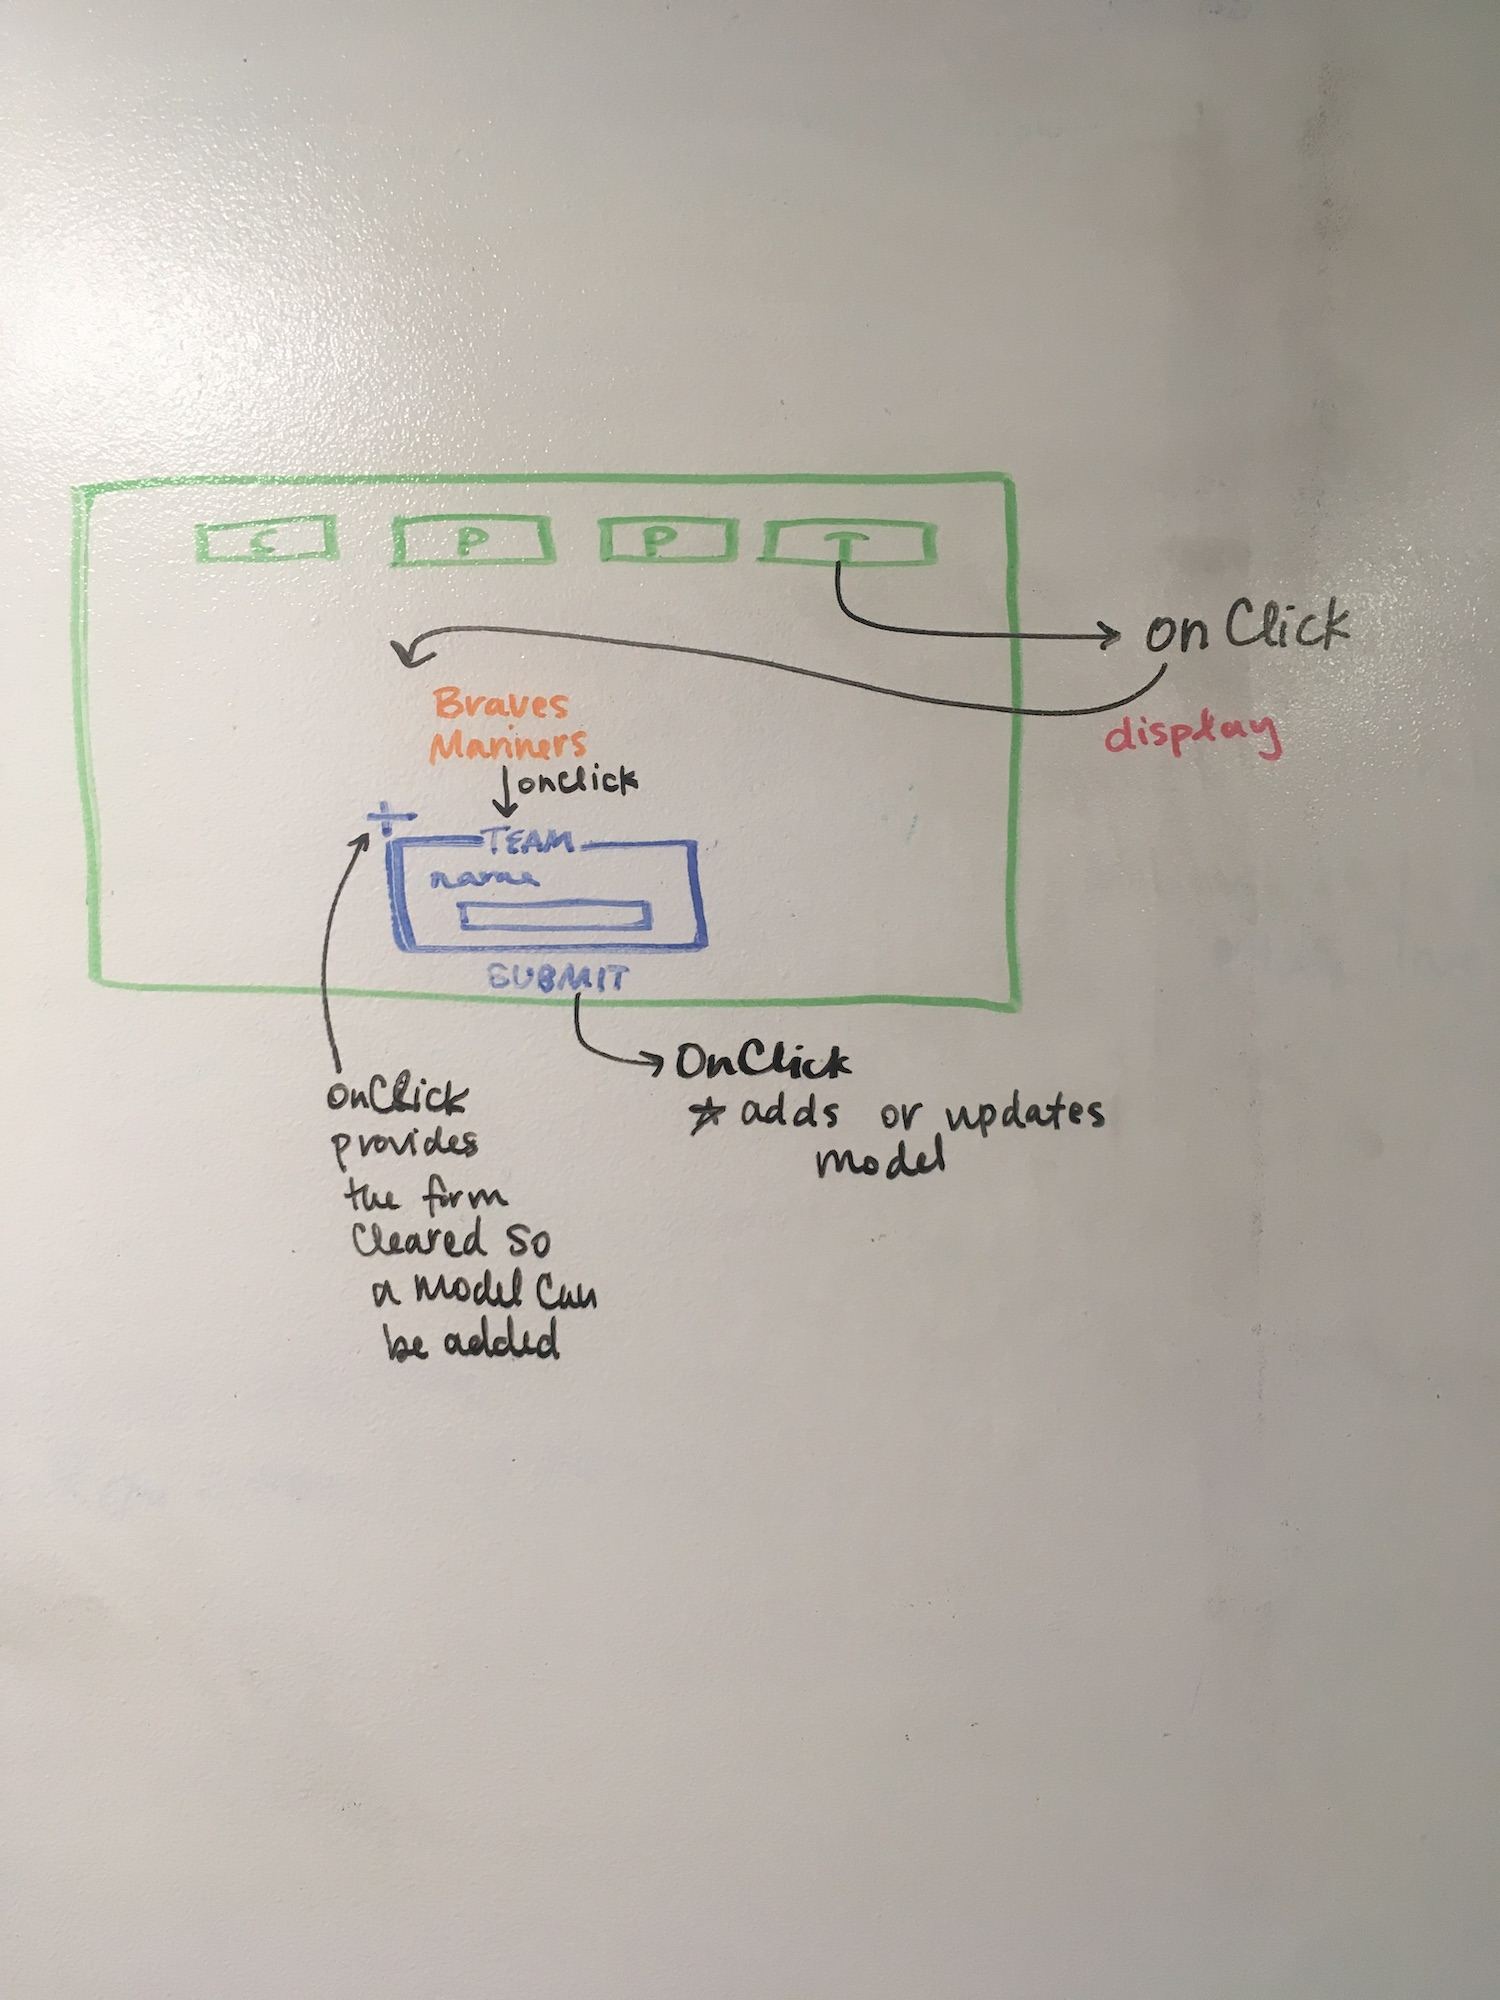 C P P T
onClick
display
Braves
Mariners
onclick
+
TEAM
name
SUBMIT
OnClick
* adds or updates
model
onClick
provides
the form
Cleared so
a model can
be added